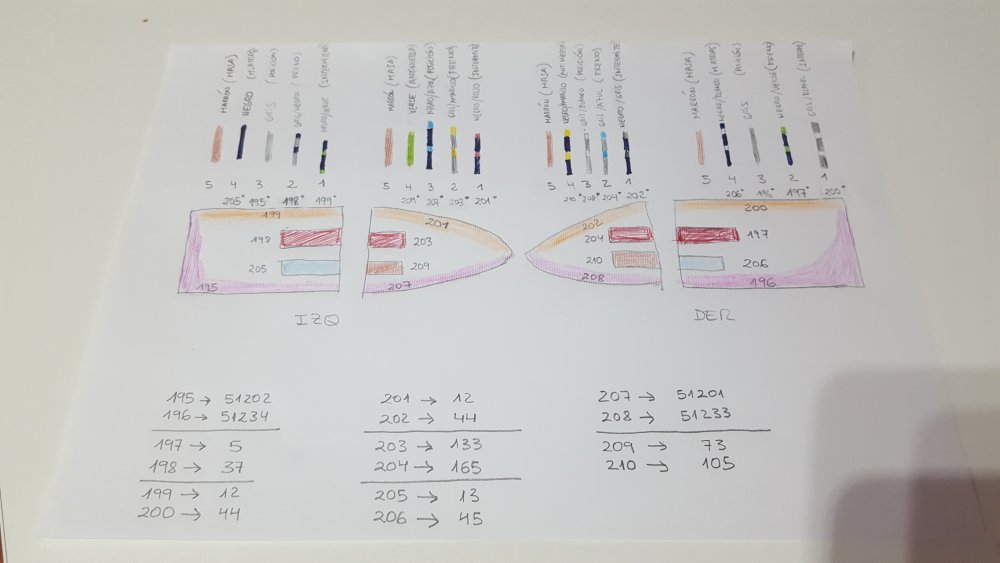 MARRÓN (MASA)
NEGRO (M.ATRÁS)
GRIS (POSICIÓN)
GRIS/NEGRO (FRENO)
NEGRO/VERDE (INTERMITENTE)
5 4 3 2 1
205* 195* 198* 199*
MARRÓN (MASA)
VERDE (ANTINIEBLA)
NEGRO/AZUL (POSICIÓN)
GRIS/AMARILLO (FRENO)
NEGRO/ROJO (INTERMITE)
5 4 3 2 1
209* 207* 203* 201*
MARRÓN (MASA)
NEGRO/AMARILLO (ANTINIEBLA)
GRIS/BLANCO (POSICIÓN)
GRIS/AZUL (FRENO)
NEGRO/GRIS (INTERMITE)
5 4 3 2 1
210* 208* 204* 202*
MARRÓN (MASA)
NEGRO/BLANCO (M.ATRÁS)
GRIS (POSICIÓN)
NEGRO/VERDE (FRENO)
GRIS/BLANC (INTERM)
5 4 3 2 1
206* 196* 197* 200*
199
198
205
195
201
203
209
207
202
204
210
208
200
197
206
196
IZQ
DER
195 → 51202
196 → 51234
197 → 5
198 → 37
199 → 12
200 → 44
201 → 12
202 → 44
203 → 133
204 → 165
205 → 13
206 → 45
207 → 51201
208 → 51233
209 → 73
210 → 105